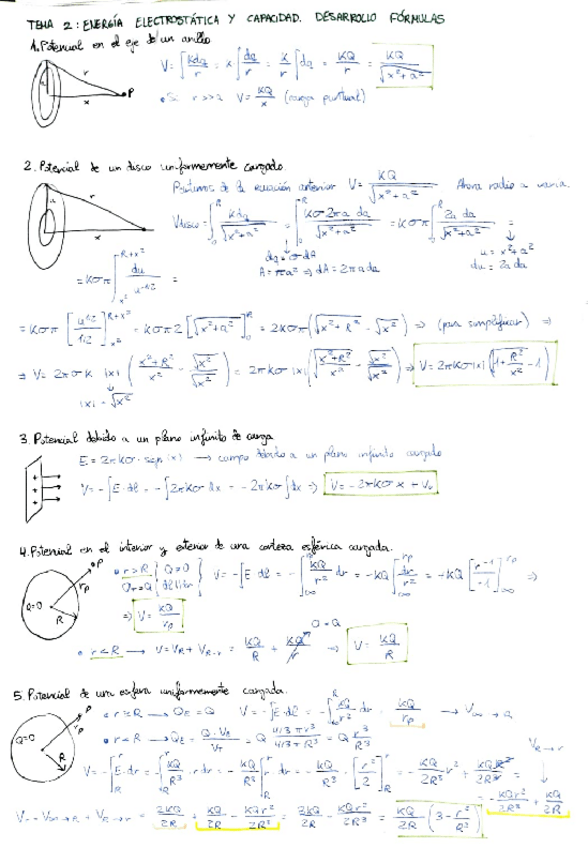 TEMA 2: ENERGÍA ELECTROSTÁTICA Y CAPACIDAD. DESARROLLO FÓRMULAS
1. Potencial en el eje de un anillo
V = ∫ Kdq/r = K ∫ dq/r = K/r ∫ dq = KQ/r = KQ/√(x²+a²)
• Si r >> a V = KQ/x (carga puntual)
a r x P
2. Potencial de un disco uniformemente cargado.
Partimos de la ecuación anterior V = KQ/√(x²+a²) Ahora radio a varia.
a r x
Vdisco = ∫₀ᴿ Kdq/√(x²+a²) = ∫₀ᴿ Kσ2πa da/√(x²+a²) = Kσπ ∫₀ᴿ 2a da/√(x²+a²) =
dq = σdA u = x²+a²
A = πa² ⇒ dA = 2πada du = 2a da
= Kσπ ∫ du/u^1/2 =
= Kσπ [u^1/2 / 1/2] = Kσπ2 [√(x²+a²)]₀ᴿ = 2Kσπ (√(x²+R²) - √x²) ⇒ (para simplificar) ⇒
⇒ V = 2πσK |x| (√(x²+R²)/x² - √x²/√x²) = 2πKσ|x| (√(x²+R²)/x² - √x²/√x²) ⇒ V = 2πKσ|x| (√(1+R²/x²) - 1)
|x| = √x²
3. Potencial debido a un plano infinito de carga
E = 2πKσ · sign(x) → campo debido a un plano infinito cargado
V = -∫E·dl = -∫2πKσ dx = -2πKσ∫dx ⇒ V = -2πKσx + V₀
4. Potencial en el interior y exterior de una corteza esférica cargada.
P rp R Q=0
• r > R V = -∫E dl = -∫ KQ/r² dr = -KQ ∫ dr/r² = -KQ [r⁻¹/-1] ⇒
⇒ V = KQ/rp
Q=0
• r < R → V = VR + VR-r = KQ/R + KQ/r ⇒ V = KQ/R
5. Potencial de una esfera uniformemente cargada.
P rp R Q=0
• r ≥ R → QE = Q V = -∫E·dl = -∫ KQ/r² dr = KQ/rp → V∞→R
• r < R → QE = Q·VE/VT = Q 4/3πr³/4/3πR³ = Q r³/R³
VR→r
V = -∫E·dr = -∫ KQ/R³ · rdr = -KQ/R³ ∫ r dr = -KQ/R³ · [r²/2] = -KQ/2R³ r² + KQR²/2R³ =
= -KQr²/2R³ + KQ/2R
V = V∞→R + VR→r = 2KQ/2R + KQ/2R - KQr²/2R³ = 3KQ/2R - KQr²/2R³ = KQ/2R (3 - r²/R²)